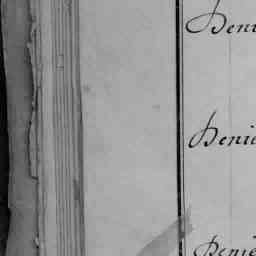 Beni
Benie
Benie